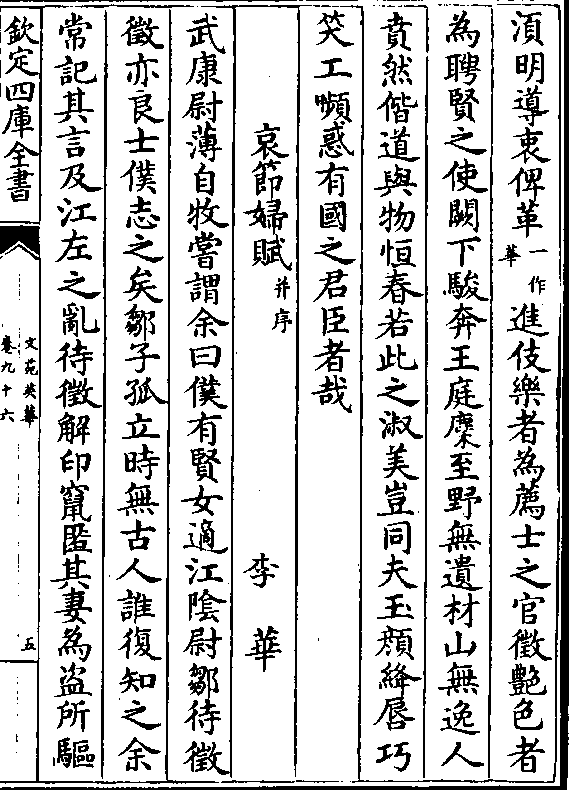 湏明導衷俾革一作華進伎樂者為薦士之官徵艶色者
為聘賢之使闕下駿奔王庭麇至野無遺材山無逸人
賁然偕道與物恒春若此之淑美豈同夫玉顔絳唇巧
笑工嚬惑有國之君臣者哉
哀節婦賦并序 李華
武康尉薄自牧嘗謂余曰僕有賢女適江陰尉鄒待徵
徵亦良士僕志之矣鄒子孤立時無古人誰復知之余
常記其言及江左之亂待徵解印竄匿其妻為盗所驅
欽定四庫全書
文苑英華
卷九十六
五